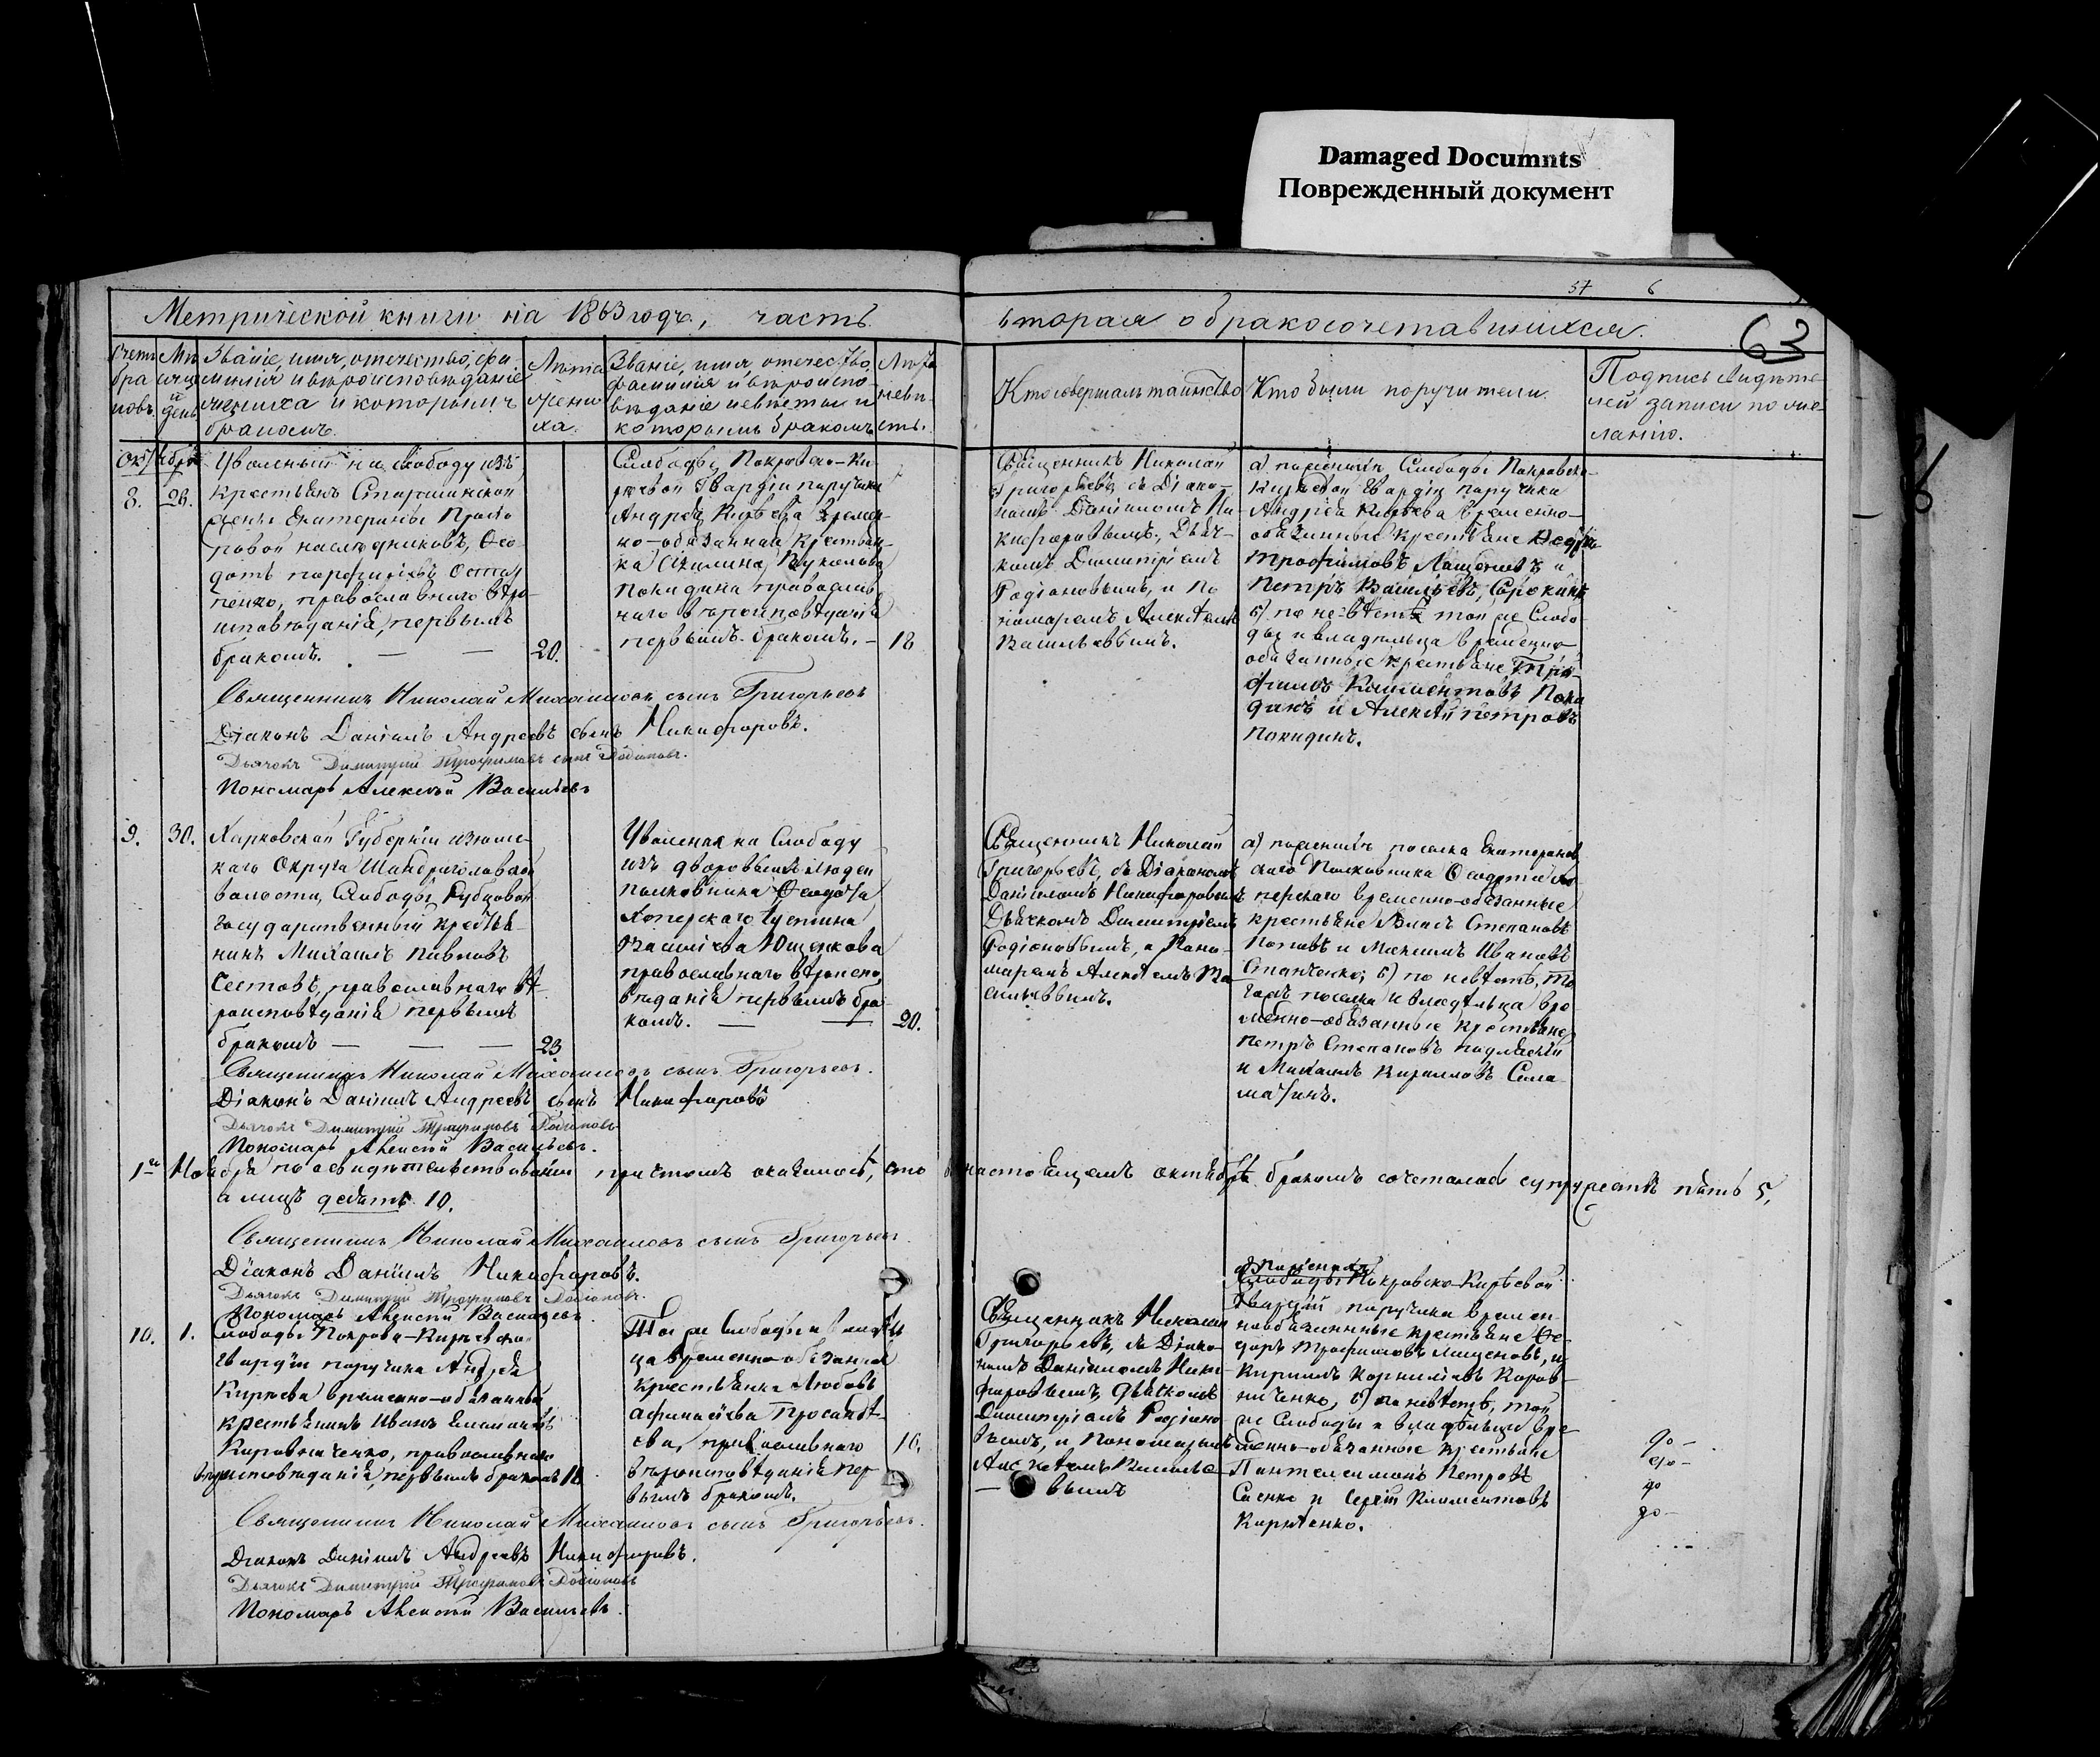 Damaged Documnts
Поврежденный документ
57 6
63
Метрической книги на 1863 годъ, часть
вторая о бракосочетавшихся.
Счетъ браковъ.
Мѣсяцъ и день
Званіе, имя, отечество, фа-
милія и вѣроисповѣданіе
жениха и которымъ
бракомъ.
Лѣта
жени
ха.
Званіе, имя, отечество,
фамилія и вѣроиспо-
вѣданіе невѣсты и
которымъ бракомъ
Лѣта
невѣ-
сты.
Кто совершалъ таинство
Кто были поручители.
Подпись свидѣте-
лей записи по же-
ланію.
Октября
8. 28.
Уволенный на свободу изъ
крестьянъ Старшинской
жены Екатерины
наслѣдниковъ, Ѳео-
дотъ Порфирьевъ Остап
пенко, православнаго вѣро-
исповѣданія, первымъ
бракомъ. — —
20.
Слободы Покровско-Ки-
рѣевой Гвардіи поручика
Андрея Кирѣева времен-
но-обязанная крестьян-
ка Акилина
Покидина православ-
наго вѣроисповѣданія
первымъ бракомъ. —
18
Священникъ Николай
Григорьевъ съ Діако-
номъ Даніиломъ Ни-
кифоровымъ, Дьяч-
комъ Димитріемъ
Родіоновымъ, и По
номаремъ Алексѣемъ
Васильевымъ.
а) по женихѣ Слободы Покровско-
Кирѣевой Гвардіи поручика
Андрея Кирѣева временно-
обязанные крестьяне
Трофимовъ Лащеновъ и
Петръ Васильевъ, Сорокинъ
б) по невѣстѣ той же Слобо-
ды и владѣльца временно
обязанные крестьяне Тро-
фимъ Климентовъ Поки
динъ и Алексѣй Петровъ
Покидинъ.
Священникъ Николай Михаиловъ сынъ Григорьевъ
Діаконъ Даніилъ Андреевъ сынъ Никифоровъ.
Дьячокъ Димитрій Трофимовъ сынъ Родіоновъ.
Пономарь Алексѣй Васильевъ
9. 30.
Харковской Губерніи Изюмс-
каго Округа Шандриголовской
волости, Слободы Рубцовой
государственный крестья-
нинъ Михаилъ Павловъ
Сестовъ, православнаго вѣ-
роисповѣданія первымъ
бракомъ — — —
23
Уволеная на Свободу
изъ дворовыхъ людей
полковника Ѳеодота
Хоперскаго Устина
Ющенкова
православнаго вѣроиспо
вѣданія первымъ бра-
комъ. — —
20.
Священникъ Николай
Григорьевъ, съ Діакономъ
Даніиломъ Никифоровымъ
Дьячкомъ Димитріемъ
Родіоновымъ, и Поно-
маремъ Алексѣемъ Ва-
сильевымъ.
а) по женихѣ поселка Екатеринов
скаго Полковника Ѳеодота Хо-
перскаго временно-обязанные
крестьяне Власъ Степановъ
Поповъ и Максимъ Ивановъ
Степченко; б) по невѣстѣ, то
гожъ поселка и владѣльца вре
менно-обязанные крестьяне
Петръ Степановъ Подлѣсный
и Михаилъ Кирилловъ Сала-
матинъ.
Священникъ Николай Михаиловъ сынъ Григорьевъ.
Діаконъ Даніилъ Андреевъ сынъ Никифоровъ
Дьячокъ Димитрій Трофимовъ Родіоновъ
Пономарь Алексѣй Васильевъ.
1го Ноября по освидѣтельствованіи причтомъ оказалось, что в настоящемъ октябрѣ бракомъ сочеталось супружествъ пять 5,
а лицъ десять 10.
Священникъ Николай Михаиловъ сынъ Григорьевъ
Діаконъ Даніилъ Никифоровъ.
Дьячокъ Димитрій Трофимовъ Родіоновъ.
Пономарь Алексѣй Васильевъ.
10. 1.
Слободы Покрово-Кирѣевской
Гвардіи поручика Андрея
Кирѣева временно-обязанный
крестьянинъ Иванъ
Коровниченко, православнаго
вѣроисповѣданія, первымъ бракомъ 18.
Той же Слободы и владѣль
ца временно-обязанная
крестьянка Любовь
Афанасіева
православнаго
вѣроисповѣданія пер-
вымъ бракомъ.
Священникъ Николай
Григорьевъ, съ Діако-
номъ Даніиломъ Ники-
форовымъ, Дьячкомъ
Димитріемъ Родіоно-
вымъ, и Пономаремъ
Алексѣемъ Василье-
вымъ
а) по женихѣ
Слободы Покровско-Кирѣевой
Гвардіи поручика времен-
нообязанные крестьяне Ѳе-
доръ Трофимовъ Лащеновъ, и
Кирилъ Корниліевъ Коров-
ниченко, б) по невѣстѣ, той
же Слободы и владѣльца вре-
менно-обязанные крестьяне
Пантелеимонъ Петровъ
Саенко и Сергѣй Климентовъ
Кирѣенко.
Священникъ Николай Михаиловъ сынъ Григорьевъ.
Діаконъ Даніилъ Андреевъ Никифоровъ.
Дьячокъ Димитрій Трофимовъ Родіоновъ
Пономарь Алексѣй Васильевъ.